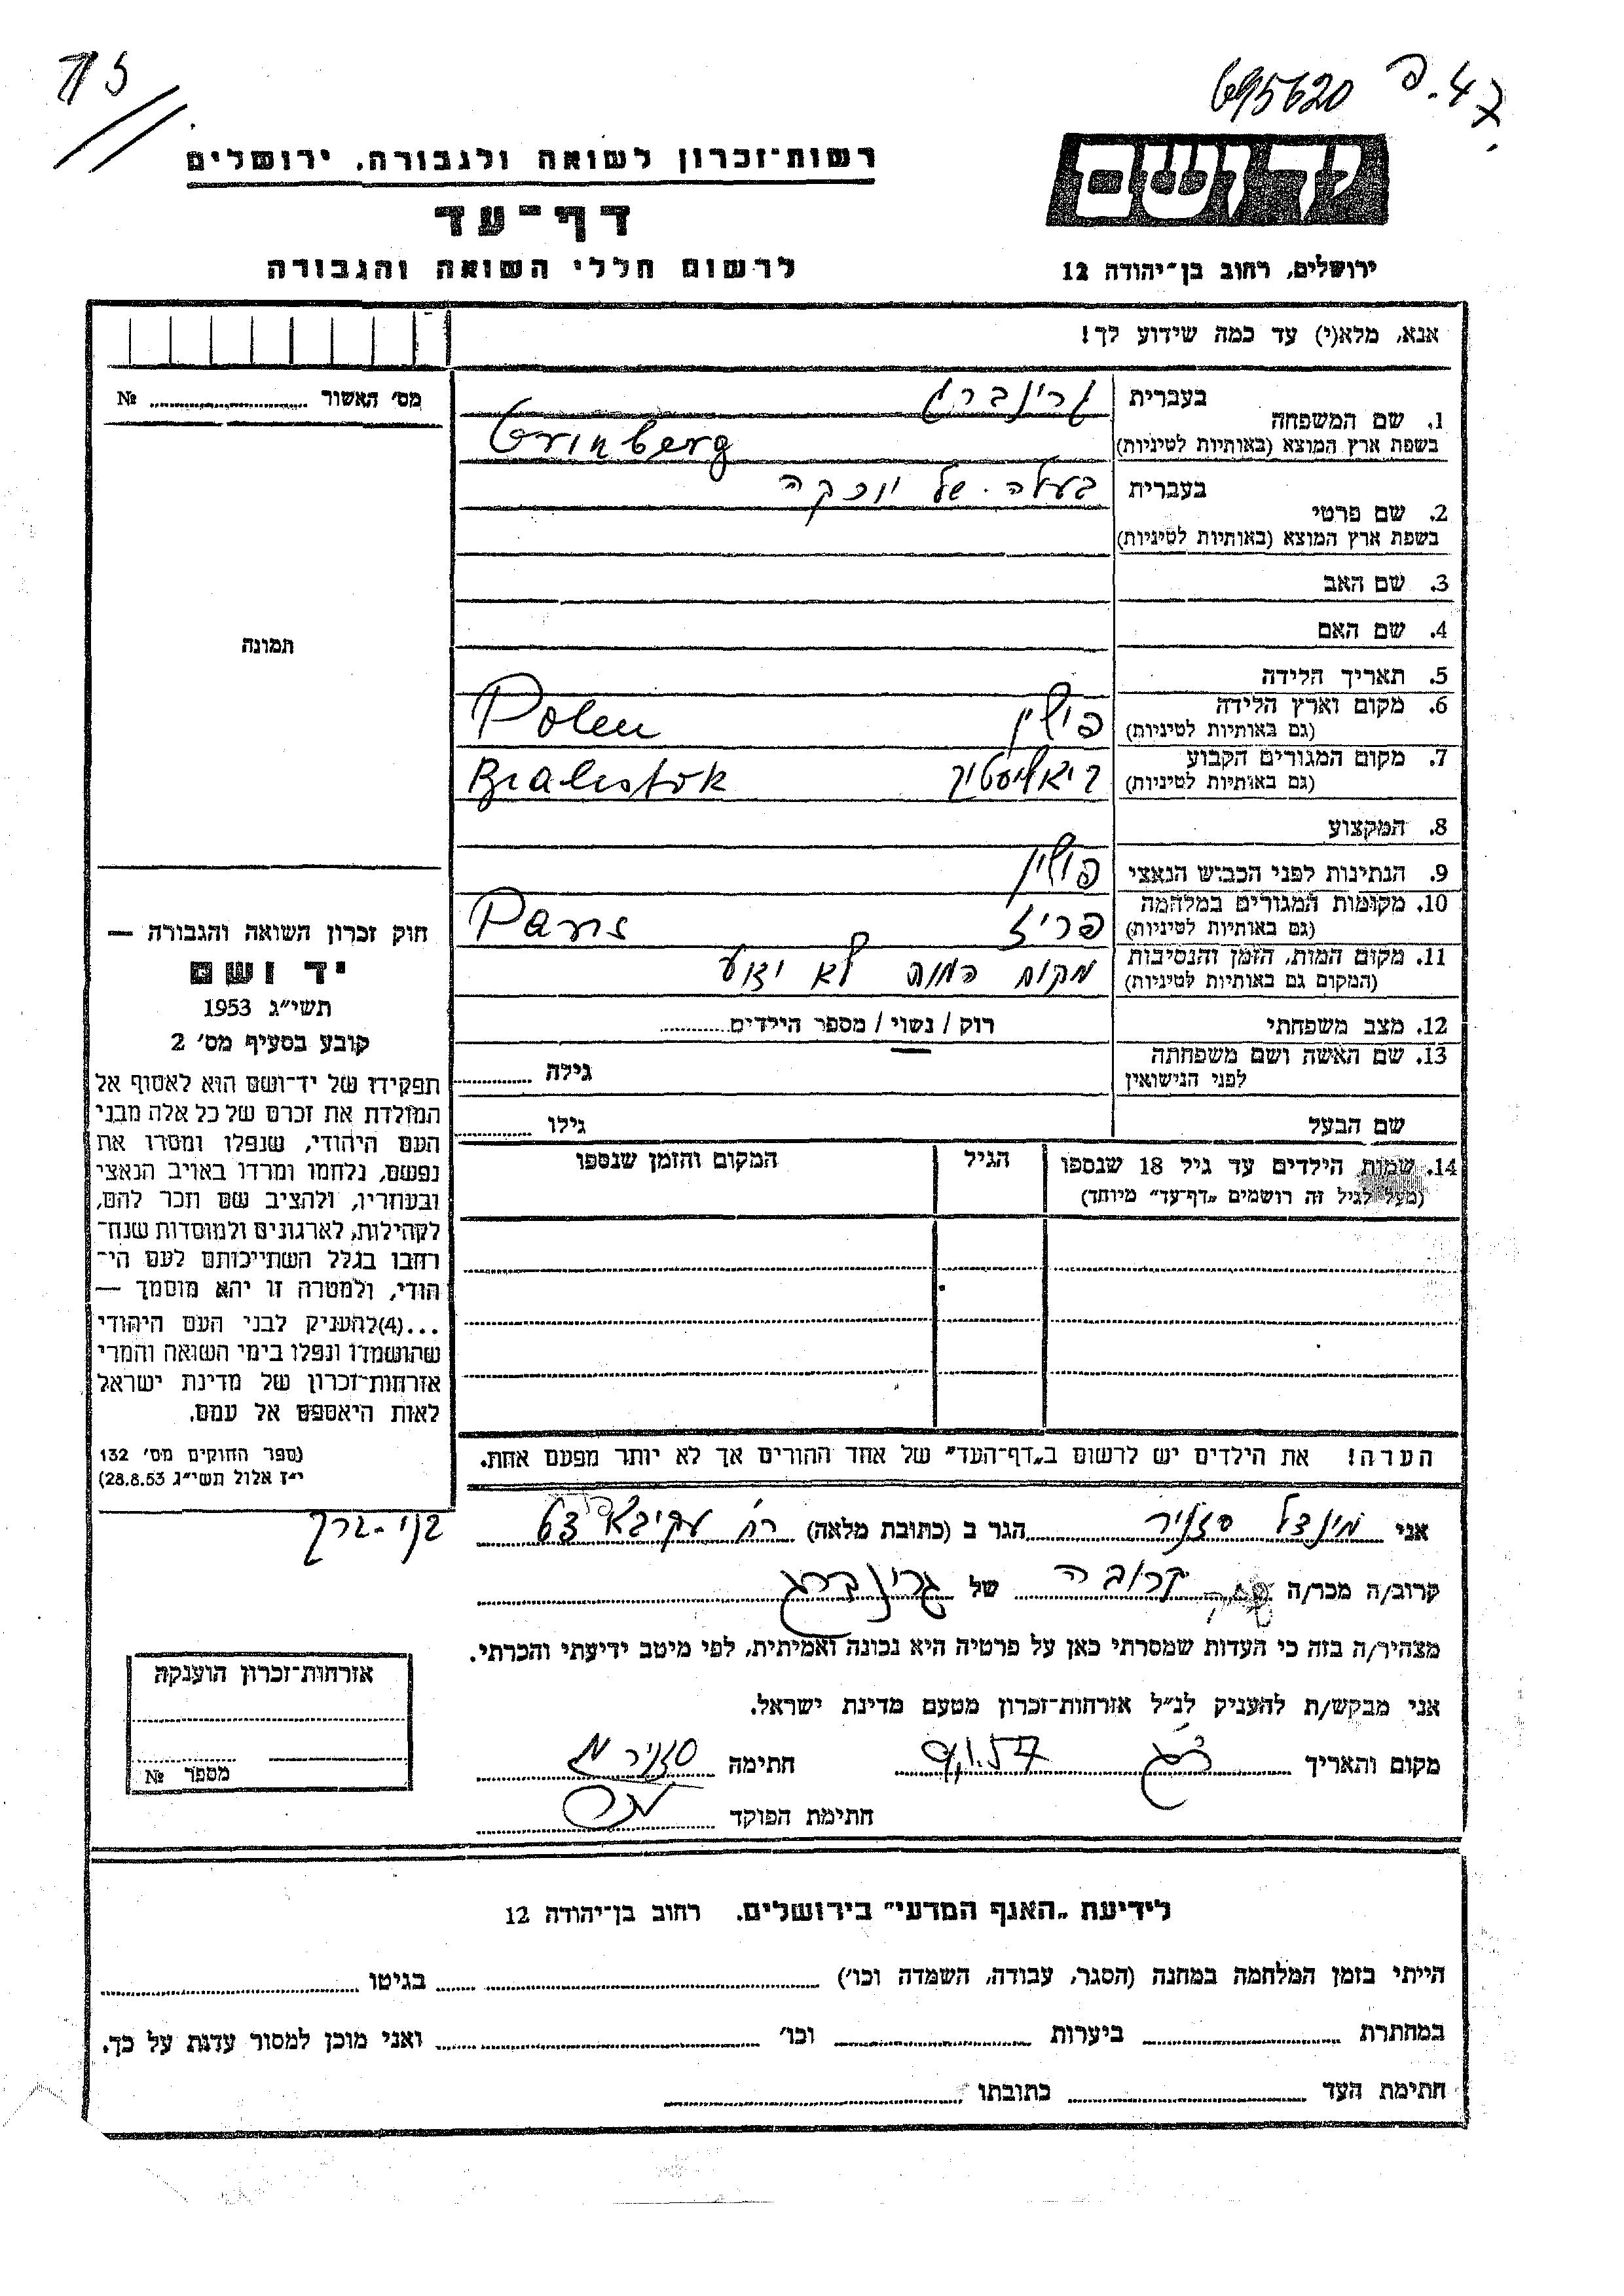 695620
רשות־זכרון לשואה ולגבורה. ירושלים
יד ושם
דף־עד
לרשום חללי השואה והגבורה
ירושלים, רחוב בן־יהודה 12
אנא, מלא(י) עד כמה שידוע לך!
מס' האשור № 
1. שם המשפחה
בעברית גרינברג
בשפת ארץ המוצא (באותיות לטיניות) Grinberg
2. שם פרטי
בעברית בעלה של
בשפת ארץ המוצא (באותיות לטיניות)
3. שם האב
4. שם האם
5. תאריך הלידה
6. מקום וארץ הלידה פולין Polen
(גם באותיות לטיניות)
7. מקום המגורים הקבוע ביאליסטוק Bialistok
(גם באותיות לטיניות)
8. המקצוע
9. הנתינות לפני הכבוש הנאצי פולין
10. מקומות המגורים במלחמה פריז Paris
(גם באותיות לטיניות)
11. מקום המות, הזמן והנסיבות מקום המות לא ידוע
(המקום גם באותיות לטיניות)
12. מצב משפחתי רוק / נשוי / מספר הילדים
13. שם האשה ושם משפחתה
לפני הנישואין גילה
שם הבעל גילו
14. שמות הילדים עד גיל 18 שנספו הגיל המקום והזמן שנספו
(מעל לגיל זה רושמים „דף־עד" מיוחד)
תמונה
חוק זכרון השואה והגבורה —
יד ושם
תשי"ג 1953
קובע בסעיף מס' 2
תפקידו של יד־ושם הוא לאסוף אל
המולדת את זכרם של כל אלה מבני
העם היהודי, שנפלו ומסרו את
נפשם, נלחמו ומרדו באויב הנאצי
ובעוזריו, ולהציב שם וזכר להם,
לקהילות, לארגונים ולמוסדות שנח־
רחבו בגלל השתייכותם לעם הי־
הודי, ולמטרה זו יהא מוסמך —
...(4)להעניק לבני העם היהודי
שהושמדו ונפלו בימי השואה והמרי
אזרחות־זכרון של מדינת ישראל
לאות היאספם אל עמם.
(ספר החוקים מס' 132
י"ז אלול תשי"ג 28.8.53)
הערה! את הילדים יש לרשום ב„דף־העד" של אחד ההורים אך לא יותר מפעם אחת.
אני מינדל סזניר הגר ב (כתובת מלאה) רח עקיבא בני-ברק
קרוב/ה מכר/ה קרובה של גרינברג
מצהיר/ה בזה כי העדות שמסרתי כאן על פרטיה היא נכונה ואמיתית, לפי מיטב ידיעתי והכרתי.
אני מבקש/ת להעניק לנ"ל אזרחות־זכרון מטעם מדינת ישראל.
מקום ותאריך 9.1.57 חתימה סזניר מ
חתימת הפוקד
אזרחות־זכרון הוענקה
מספר №
לידיעת „האגף המדעי" בירושלים. רחוב בן־יהודה 12
הייתי בזמן המלחמה במחנה (הסגר, עבודה, השמדה וכו') בגיטו
במחתרת ביערות וכו' ואני מוכן למסור עדות על כך.
חתימת העד כתובתו